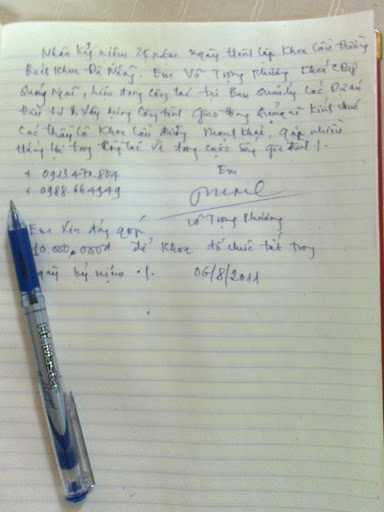 Nhân kỷ niệm 25 năm ngày thành lập Khoa Cầu Đường
Bách Khoa Đà Nẵng. Em Võ Trọng Phương Khoá
Quảng Ngãi, hiện đang công tác tại Ban Quản lý Các Dự án
Đầu tư & Xây dựng Công trình Giao thông Quảng Ngãi Kính chúc
Các thầy Cô Khoa Cầu đường Mạnh khoẻ, gặp nhiều
thắng lợi trong công tác và trong cuộc sống gia đình /.
+ 0913470.804
Em
+ 0988.664949
Võ Trọng Phương
Em xin đóng góp
10.000.000đ để Khoa tổ chức tốt trong
ngày kỷ niệm ./.
06/8/2011